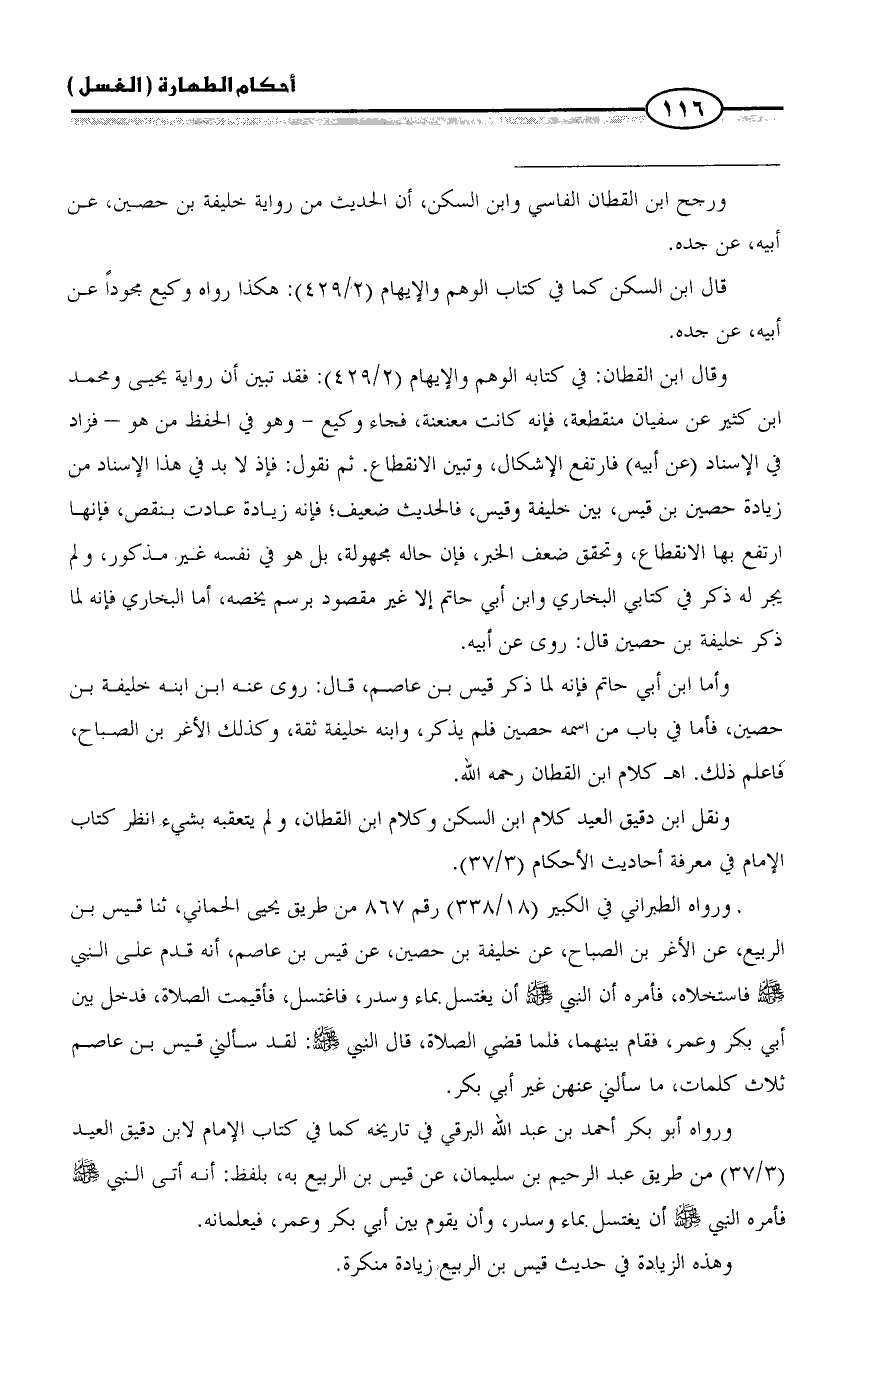 أحكام الطهارة (الغسل)
١١٦
ورجح ابن القطان الفاسي وابن السكن، أن الحديث من رواية خليفة بن حصين، عن
أبيه، عن جده.
قال ابن السكن كما في كتاب الوهم والإيهام (٤٢٩/٢): هكذا رواه وكيع مجوداً عن
أبيه، عن جده.
وقال ابن القطان: في كتابه الوهم والإيهام (٤٢٩/٢): فقد تبين أن رواية يحيى ومحمد
ابن كثير عن سفيان منقطعة، فإنه كانت معنعنة، فجاء وكيع – وهو في الحفظ من هو – فزاد
في الإسناد (عن أبيه) فارتفع الإشكال، وتبين الانقطاع. ثم نقول: فإذ لا بد في هذا الإسناد من
زيادة حصين بن قيس، بين خليفة وقيس، فالحديث ضعيف؛ فإنه زيادة عادت بنقص، فإنها
ارتفع بها الانقطاع، وتحقق ضعف الخبر، فإن حاله مجهولة، بل هو في نفسه غير مذكور، ولم
يجر له ذكر في كتابي البخاري وابن أبي حاتم إلا غير مقصود برسم يخصه، أما البخاري فإنه لما
ذكر خليفة بن حصين قال: روى عن أبيه.
وأما ابن أبي حاتم فإنه لما ذكر قيس بن عاصم، قال: روى عنه ابن ابنه خليفة بن
حصين، فأما في باب من اسمه حصين فلم يذكر، وابنه خليفة ثقة، وكذلك الأغر بن الصباح،
فاعلم ذلك. اهـ كلام ابن القطان رحمه الله.
ونقل ابن دقيق العيد كلام ابن السكن وكلام ابن القطان، ولم يتعقبه بشيء انظر كتاب
الإمام في معرفة أحاديث الأحكام (٣٧/٣).
. ورواه الطبراني في الكبير (٣٣٨/١٨) رقم ٨٦٧ من طريق يحيى الحماني، ثنا قيس بن
الربيع، عن الأغر بن الصباح، عن خليفة بن حصين، عن قيس بن عاصم، أنه قدم على النبي
ﷺ فاستخلاه، فأمره أن النبي ﷺ أن يغتسل بماء وسدر، فاغتسل، فأقيمت الصلاة، فدخل بين
أبي بكر وعمر، فقام بينهما، فلما قضي الصلاة، قال النبي ﷺ: لقد سألني قيس بن عاصم
ثلاث كلمات، ما سألني عنهن غير أبي بكر.
ورواه أبو بكر أحمد بن عبد الله البرقي في تاريخه كما في كتاب الإمام لابن دقيق العيد
(٣٧/٣) من طريق عبد الرحيم بن سليمان، عن قيس بن الربيع به، بلفظ: أنه أتى النبي ﷺ
فأمره النبي ﷺ أن يغتسل بماء وسدر، وأن يقوم بين أبي بكر وعمر، فيعلمانه.
وهذه الزيادة في حديث قيس بن الربيع زيادة منكرة.